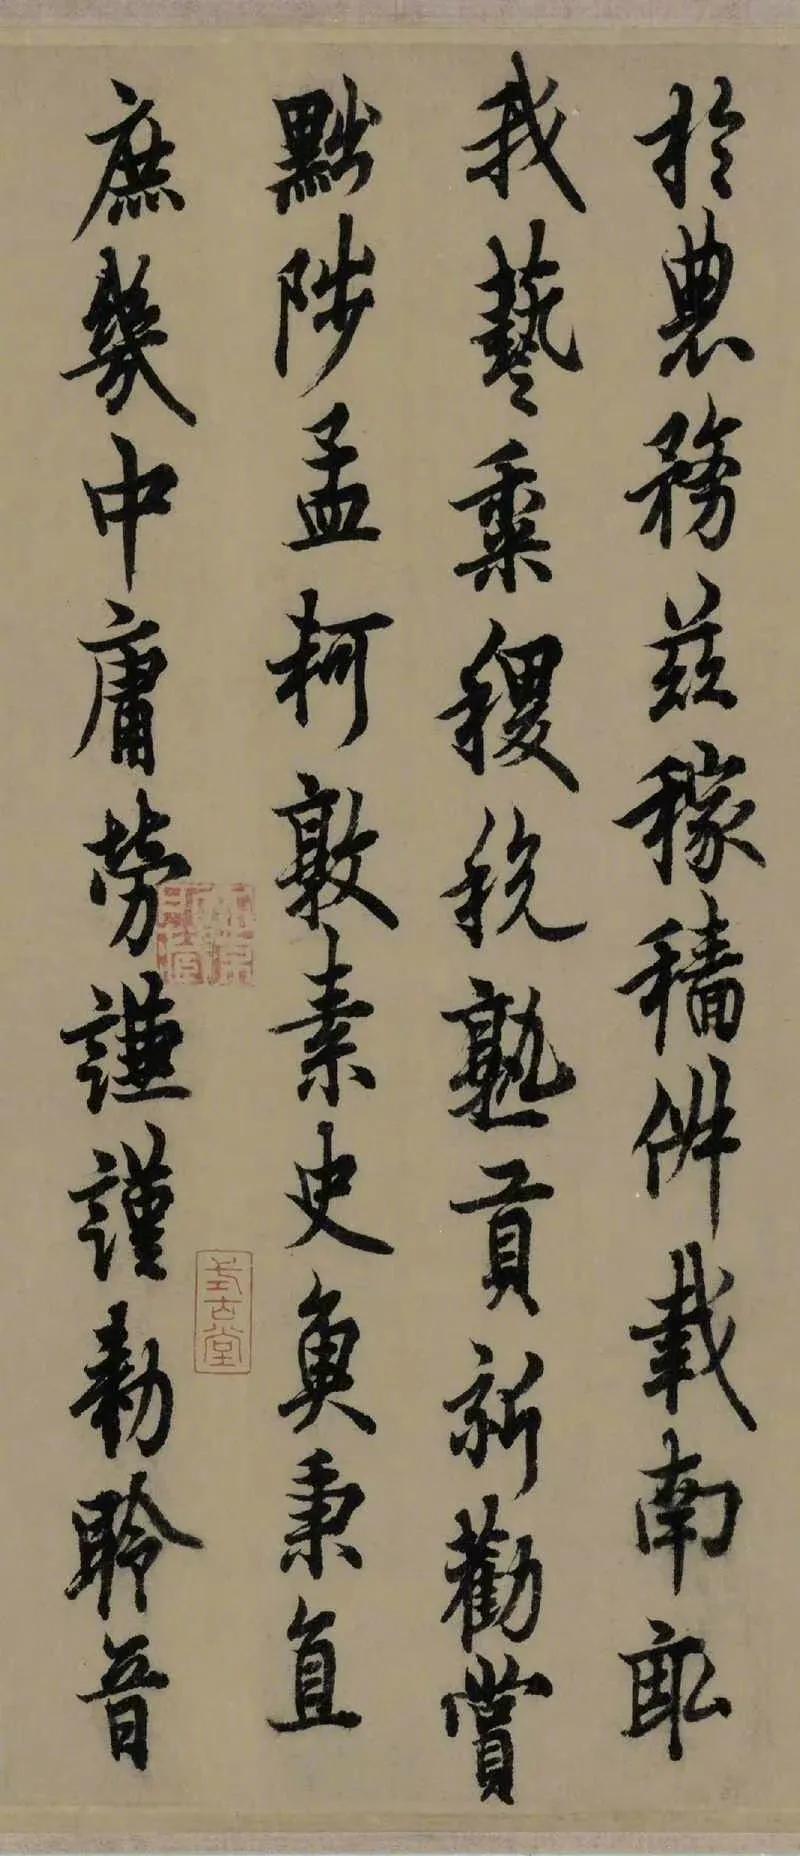 於農務茲稼穡俶載南畝
我藝黍稷稅熟貢新勸賞
黜陟孟軻敦素史魚秉直
庶幾中庸勞謙謹勅聆音
式古堂